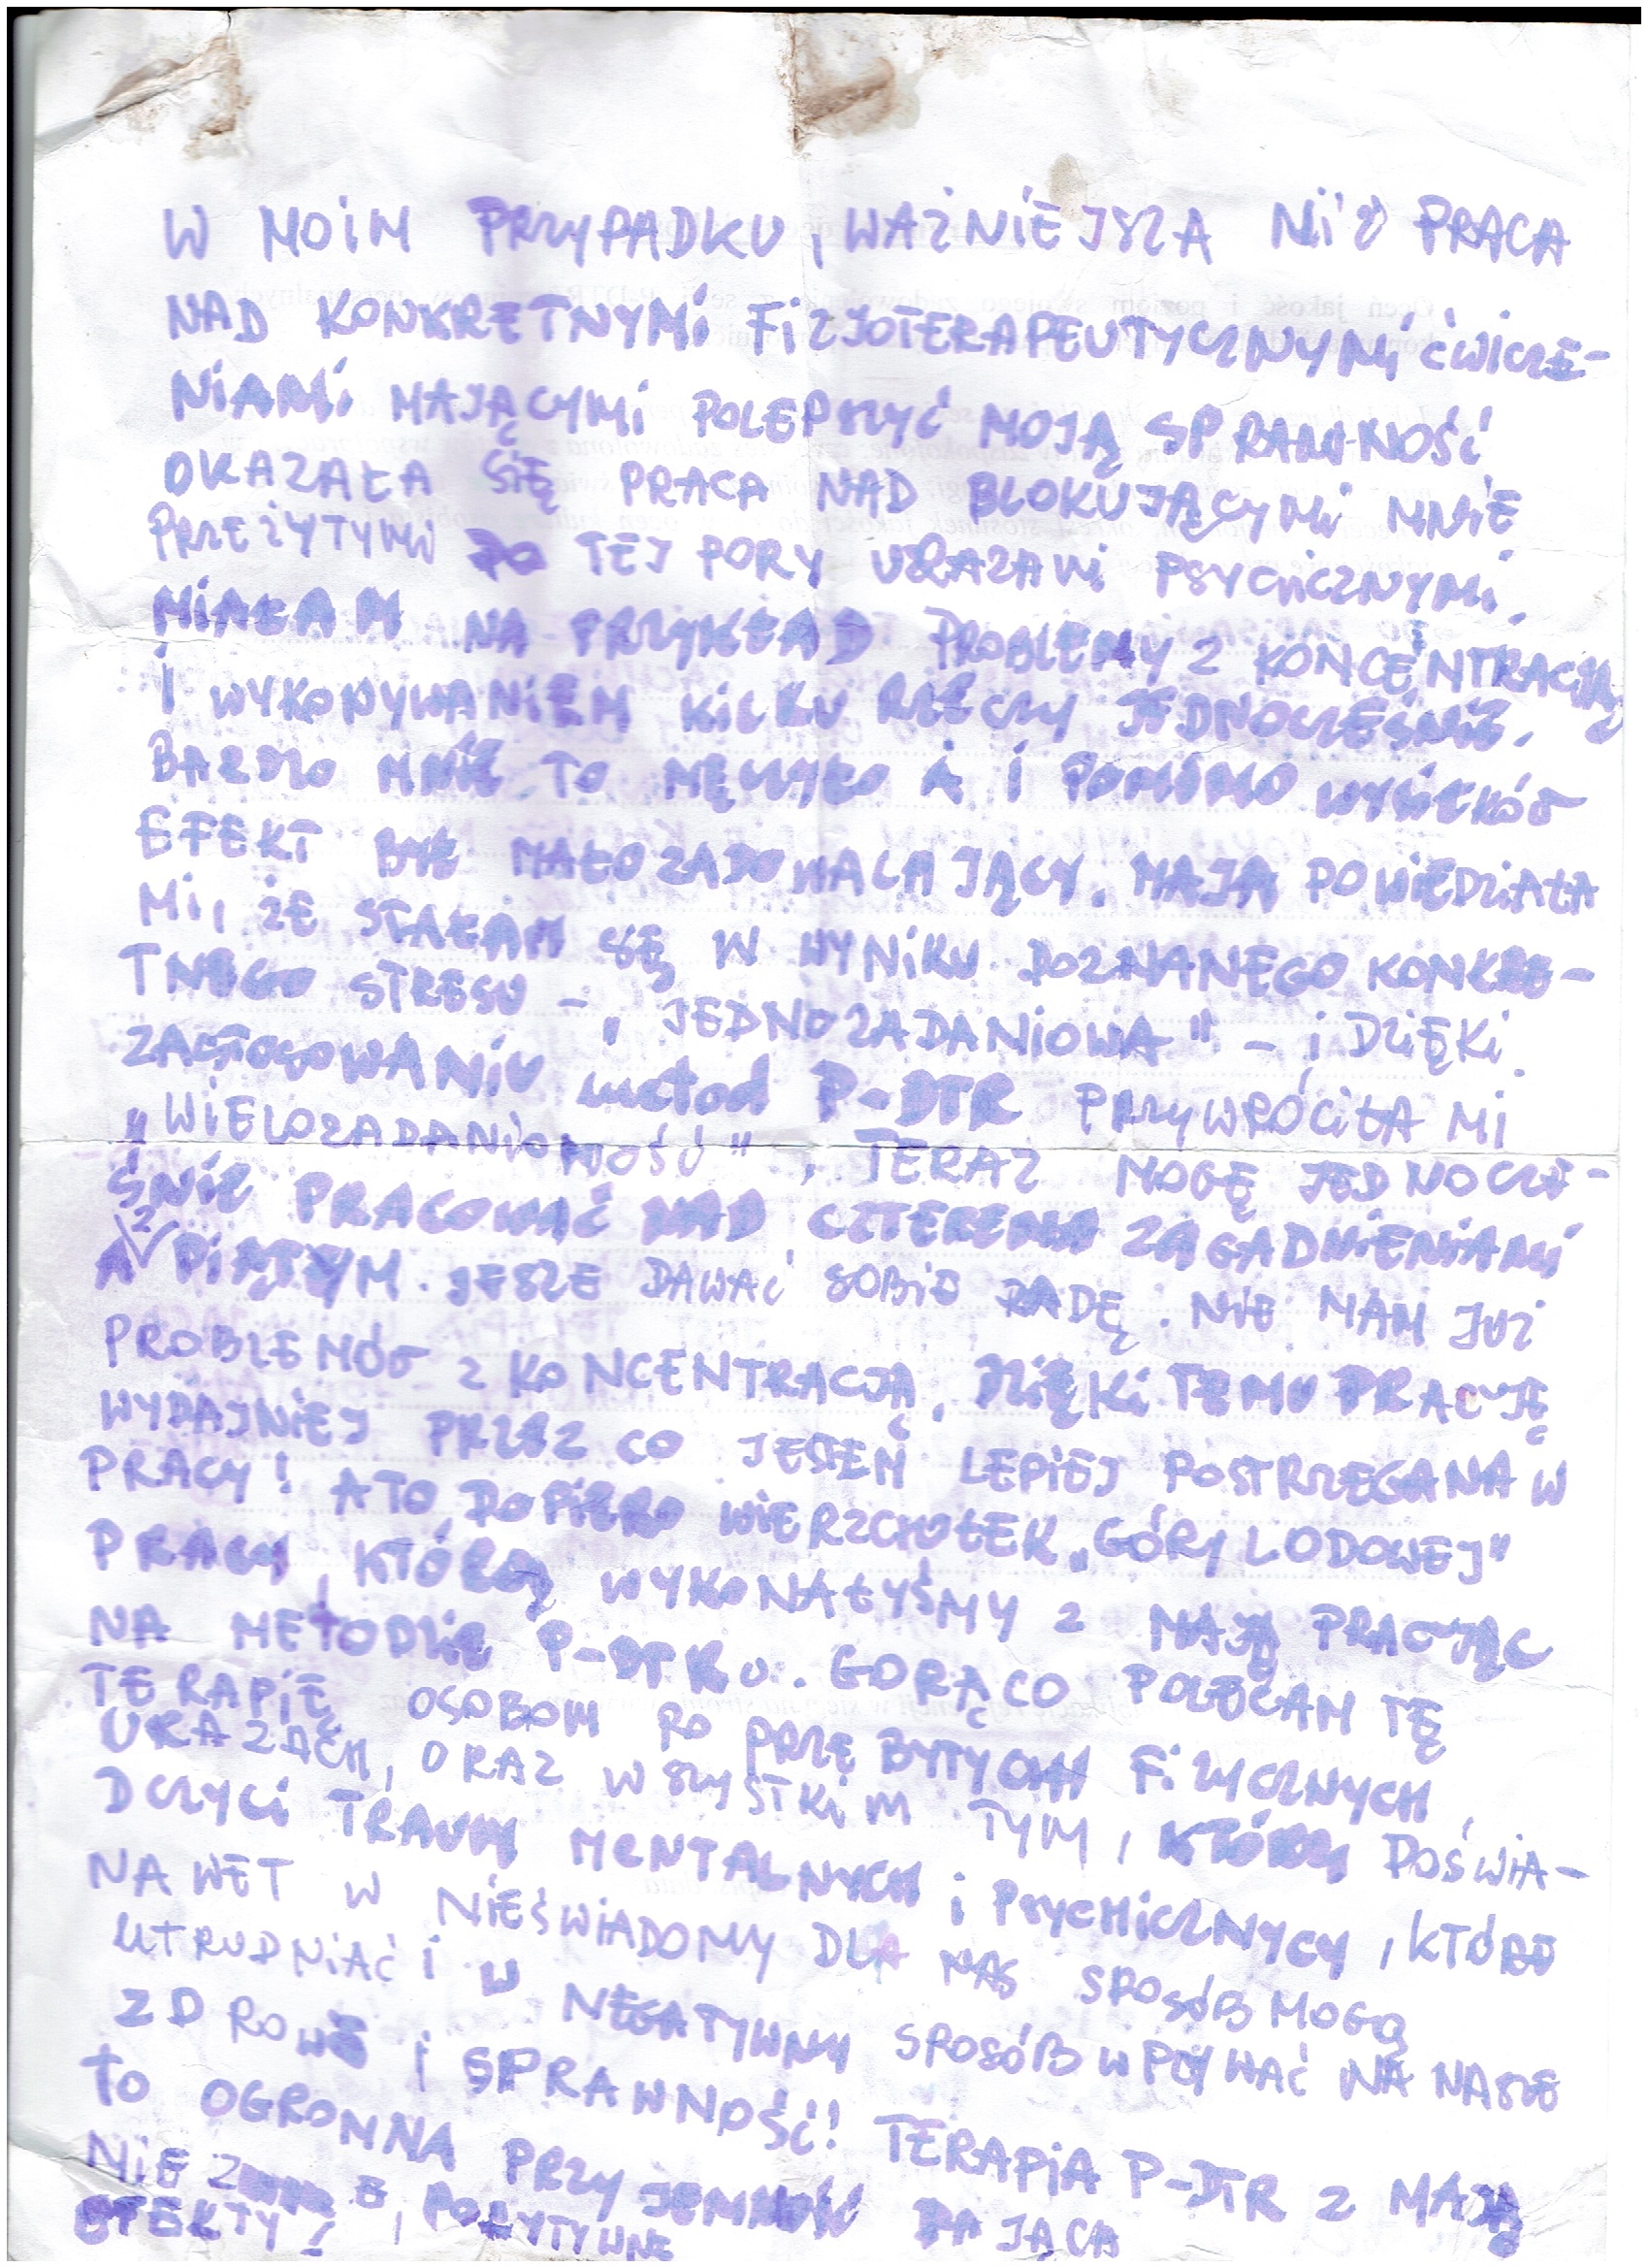 W MOIM PRZYPADKU, WAŻNIEJSZA NIŻ PRACA
NAD KONKRETNYMI FIZJOTERAPEUTYCZNYMI ĆWICZE-
NIAMI MAJĄCYMI POLEPSZYĆ MOJĄ SPRAWNOŚĆ
OKAZAŁA SIĘ PRACA NAD BLOKUJĄCYMI MNIE
PRZEŻYTYMI DO TEJ PORY URAZAMI PSYCHICZNYMI.
MIAŁAM NA PRZYKŁAD PROBLEMY Z KONCENTRACJĄ
I WYKONYWANIEM KILKU RZECZY JEDNOCZEŚNIE.
BARDZO MNIE TO MĘCZYŁO A I POMIMO WYSIŁKÓW
EFEKT BYŁ MAŁO ZADOWALAJĄCY. MAJA POWIEDZIAŁA
MI, ŻE STAŁAM SIĘ W WYNIKU DOZNANEGO KONKRE-
TNEGO STRESU - „JEDNOZADANIOWA" - i DZIĘKI
ZASTOSOWANIU metod P-DTR PRZYWRÓCIŁA MI
„WIELOZADANIOWOŚĆ". TERAZ MOGĘ JEDNOCZE-
ŚNIE PRACOWAĆ NAD CZTEREMA ZAGADNIENIAMI
A Z PIĄTYM JESZE DAWAĆ SOBIE RADĘ. NIE MAM JUŻ
PROBLEMÓW Z KONCENTRACJĄ, DZIĘKI TEMU PRACUJĘ
WYDAJNIEJ PRZEZ CO JESTEM LEPIEJ POSTRZEGANA W
PRACY! A TO DOPIERO WIERZCHOŁEK „GÓRY LODOWEJ"
PRACY, KTÓRĄ WYKONAŁYŚMY Z MAJĄ PRACUJĄC
NA METODZIE P-DTR.. GORĄCO POLECAM TĘ
TERAPIĘ OSOBOM PO PRZEBYTYCH FIZYCZNYCH
URAZACH, ORAZ WSZYSTKIM TYM, KTÓRZY DOŚWIA-
DCZYLI TRAUMY MENTALNYCH i PSYCHICZNYCY, KTÓRE
NAWET W NIEŚWIADOMY DLA NAS SPOSÓB MOGĄ
UTRUDNIAĆ I W NEGATYWNY SPOSÓB WPŁYWAĆ NA NASZE
ZDROWIE I SPRAWNOŚĆ! TERAPIA P-DTR Z MAJĄ
TO OGROMNA PRZYJEMNOŚĆ DAJĄCA
POZYTYWNE
EFEKTY!